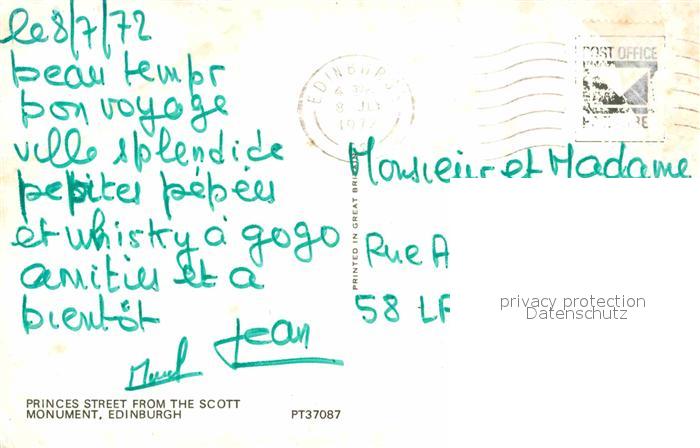 le 8/7/72
beau temps
bon voyage
ville splendide
pepites pépées
et whisky à gogo
amitiés et a
bientôt
Jean
EDINBURGH
8 JLY
POST OFFICE
PRINTED IN GREAT BRITAIN
Monsieur et Madame
Rue A
58 LF
privacy protection
Datenschutz
PRINCES STREET FROM THE SCOTT
MONUMENT, EDINBURGH
PT37087